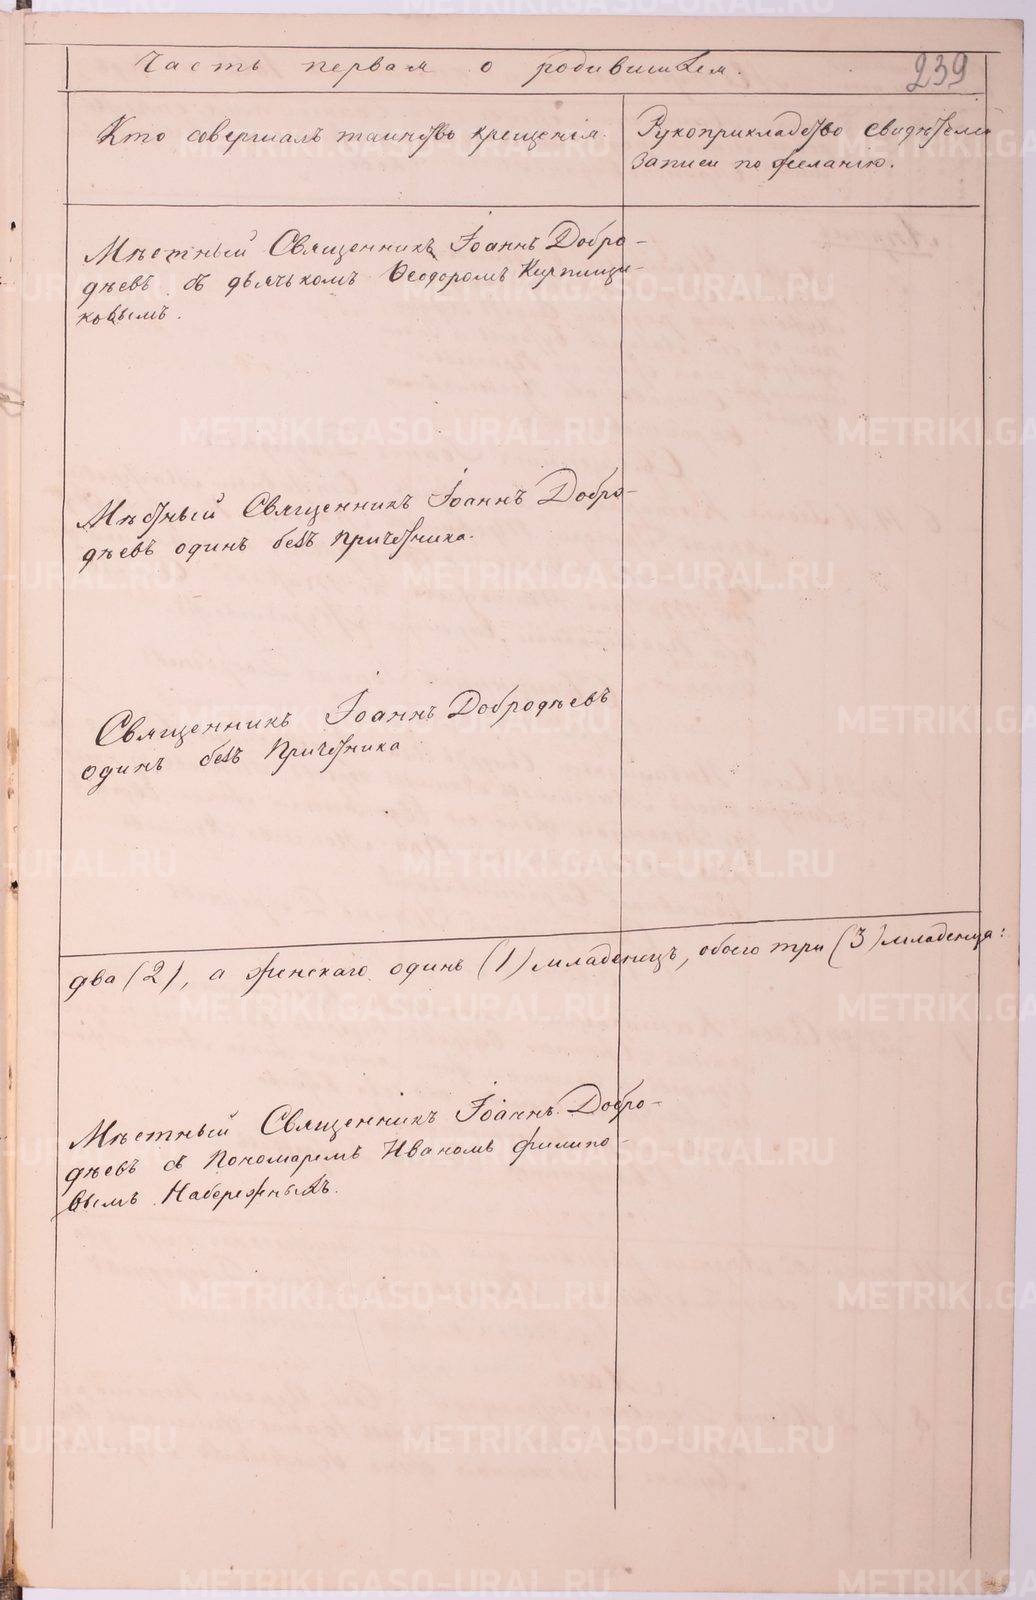 Часть первая о родившихся.
239
Кто совершалъ таинство крещенія.
Рукоприкладство свидѣтелей
записи по желанію.
Мѣстный Священникъ Іоаннъ Добро-
дѣевъ съ дьячькомъ Ѳеодоромъ Кирпищи-
ковымъ.
Мѣстный Священникъ Іоаннъ Добро-
дѣевъ одинъ безъ Причетника.
Священникъ Іоаннъ Добродѣевъ
одинъ безъ Причетника
два (2), а женскаго одинъ (1) младенецъ, обоего три (3) младенца:
Мѣстный Священникъ Іоаннъ Добро-
дѣевъ съ Пономаремъ Иваномъ Филипо-
вымъ Набережныхъ.
METRIKI.GASO-URAL.RU